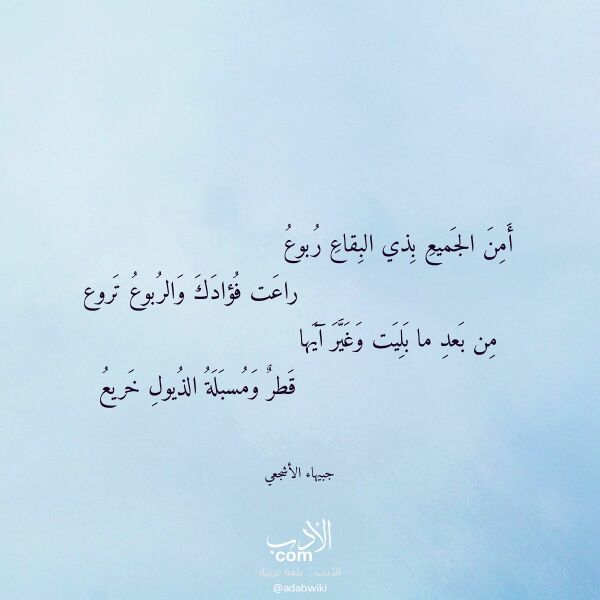 أَمِنَ الجَميعِ بِذي البِقاعِ رُبوعُ
راعَت فُؤادَكَ وَالرُبوعُ تَروع
مِن بَعدِ ما بَلِيَت وَغَيَّرَ آيَها
قَطرٌ وَمُسبَلَةُ الذُيولِ خَريعُ
جبيهاء الأشجعي
الأدب
com
الأدب .. بلغة عربية
@adabwiki